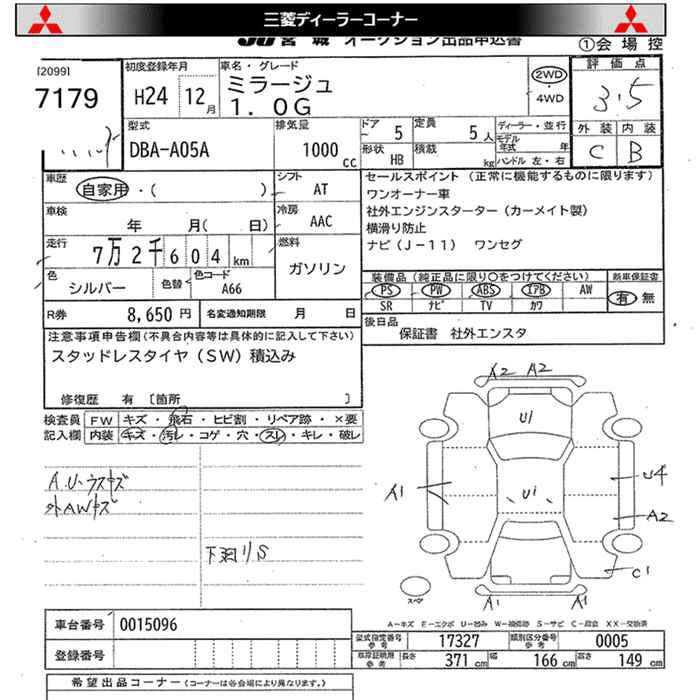 三菱ディーラーコーナー
JU宮城 オークション出品申込書
①会場控
[2099]
7179
初度登録年月
H24 12月
車名・グレード
ミラージュ
1.0G
2WD
・
4WD
評価点
3.5
外装 内装
C B
型式
DBA-A05A
排気量
1000cc
ドア 5
定員 5人
形状 HB
積載 kg
ディーラー・並行
モデル年式 年
ハンドル 左・右
車歴
自家用・( )
シフト
AT
車検
年 月( 日)
冷房
AAC
走行
7万2千604km
燃料
ガソリン
色
シルバー
色替
色コード
A66
R券 8,650円
名変通知期限 月 日
セールスポイント(正常に機能するものに限ります)
ワンオーナー車
社外エンジンスターター(カーメイト製)
横滑り防止
ナビ(J-11) ワンセグ
装備品(純正品に限り○をつけてください)
新車保証書
PS PW ABS エアB AW
SR ナビ TV カワ
有・無
後日品
保証書 社外エンスタ
注意事項申告欄(不具合内容等は具体的に記入して下さい)
スタッドレスタイヤ(SW)積込み
修復歴 有 〔箇所 〕
検査員記入欄
FW キズ・飛石・ヒビ割・リペア跡・×要
内装 キズ・汚レ・コゲ・穴・スレ・キレ・破レ
A.U.ウスキズ
外AWキズ
下廻りS
A2 A2
U1
A1
U1
U4
A2
C1
スペア
A1 A1
A-キズ E-エクボ U-凹み W-補修跡 S-サビ C-腐食 XX-交換済
車台番号 0015096
登録番号
型式指定番号 参考 17327
類別区分番号 参考 0005
車庫証明用 参考 長さ 371cm 幅 166cm 高さ 149cm
希望出品コーナー(コーナーは各会場により異なります。)